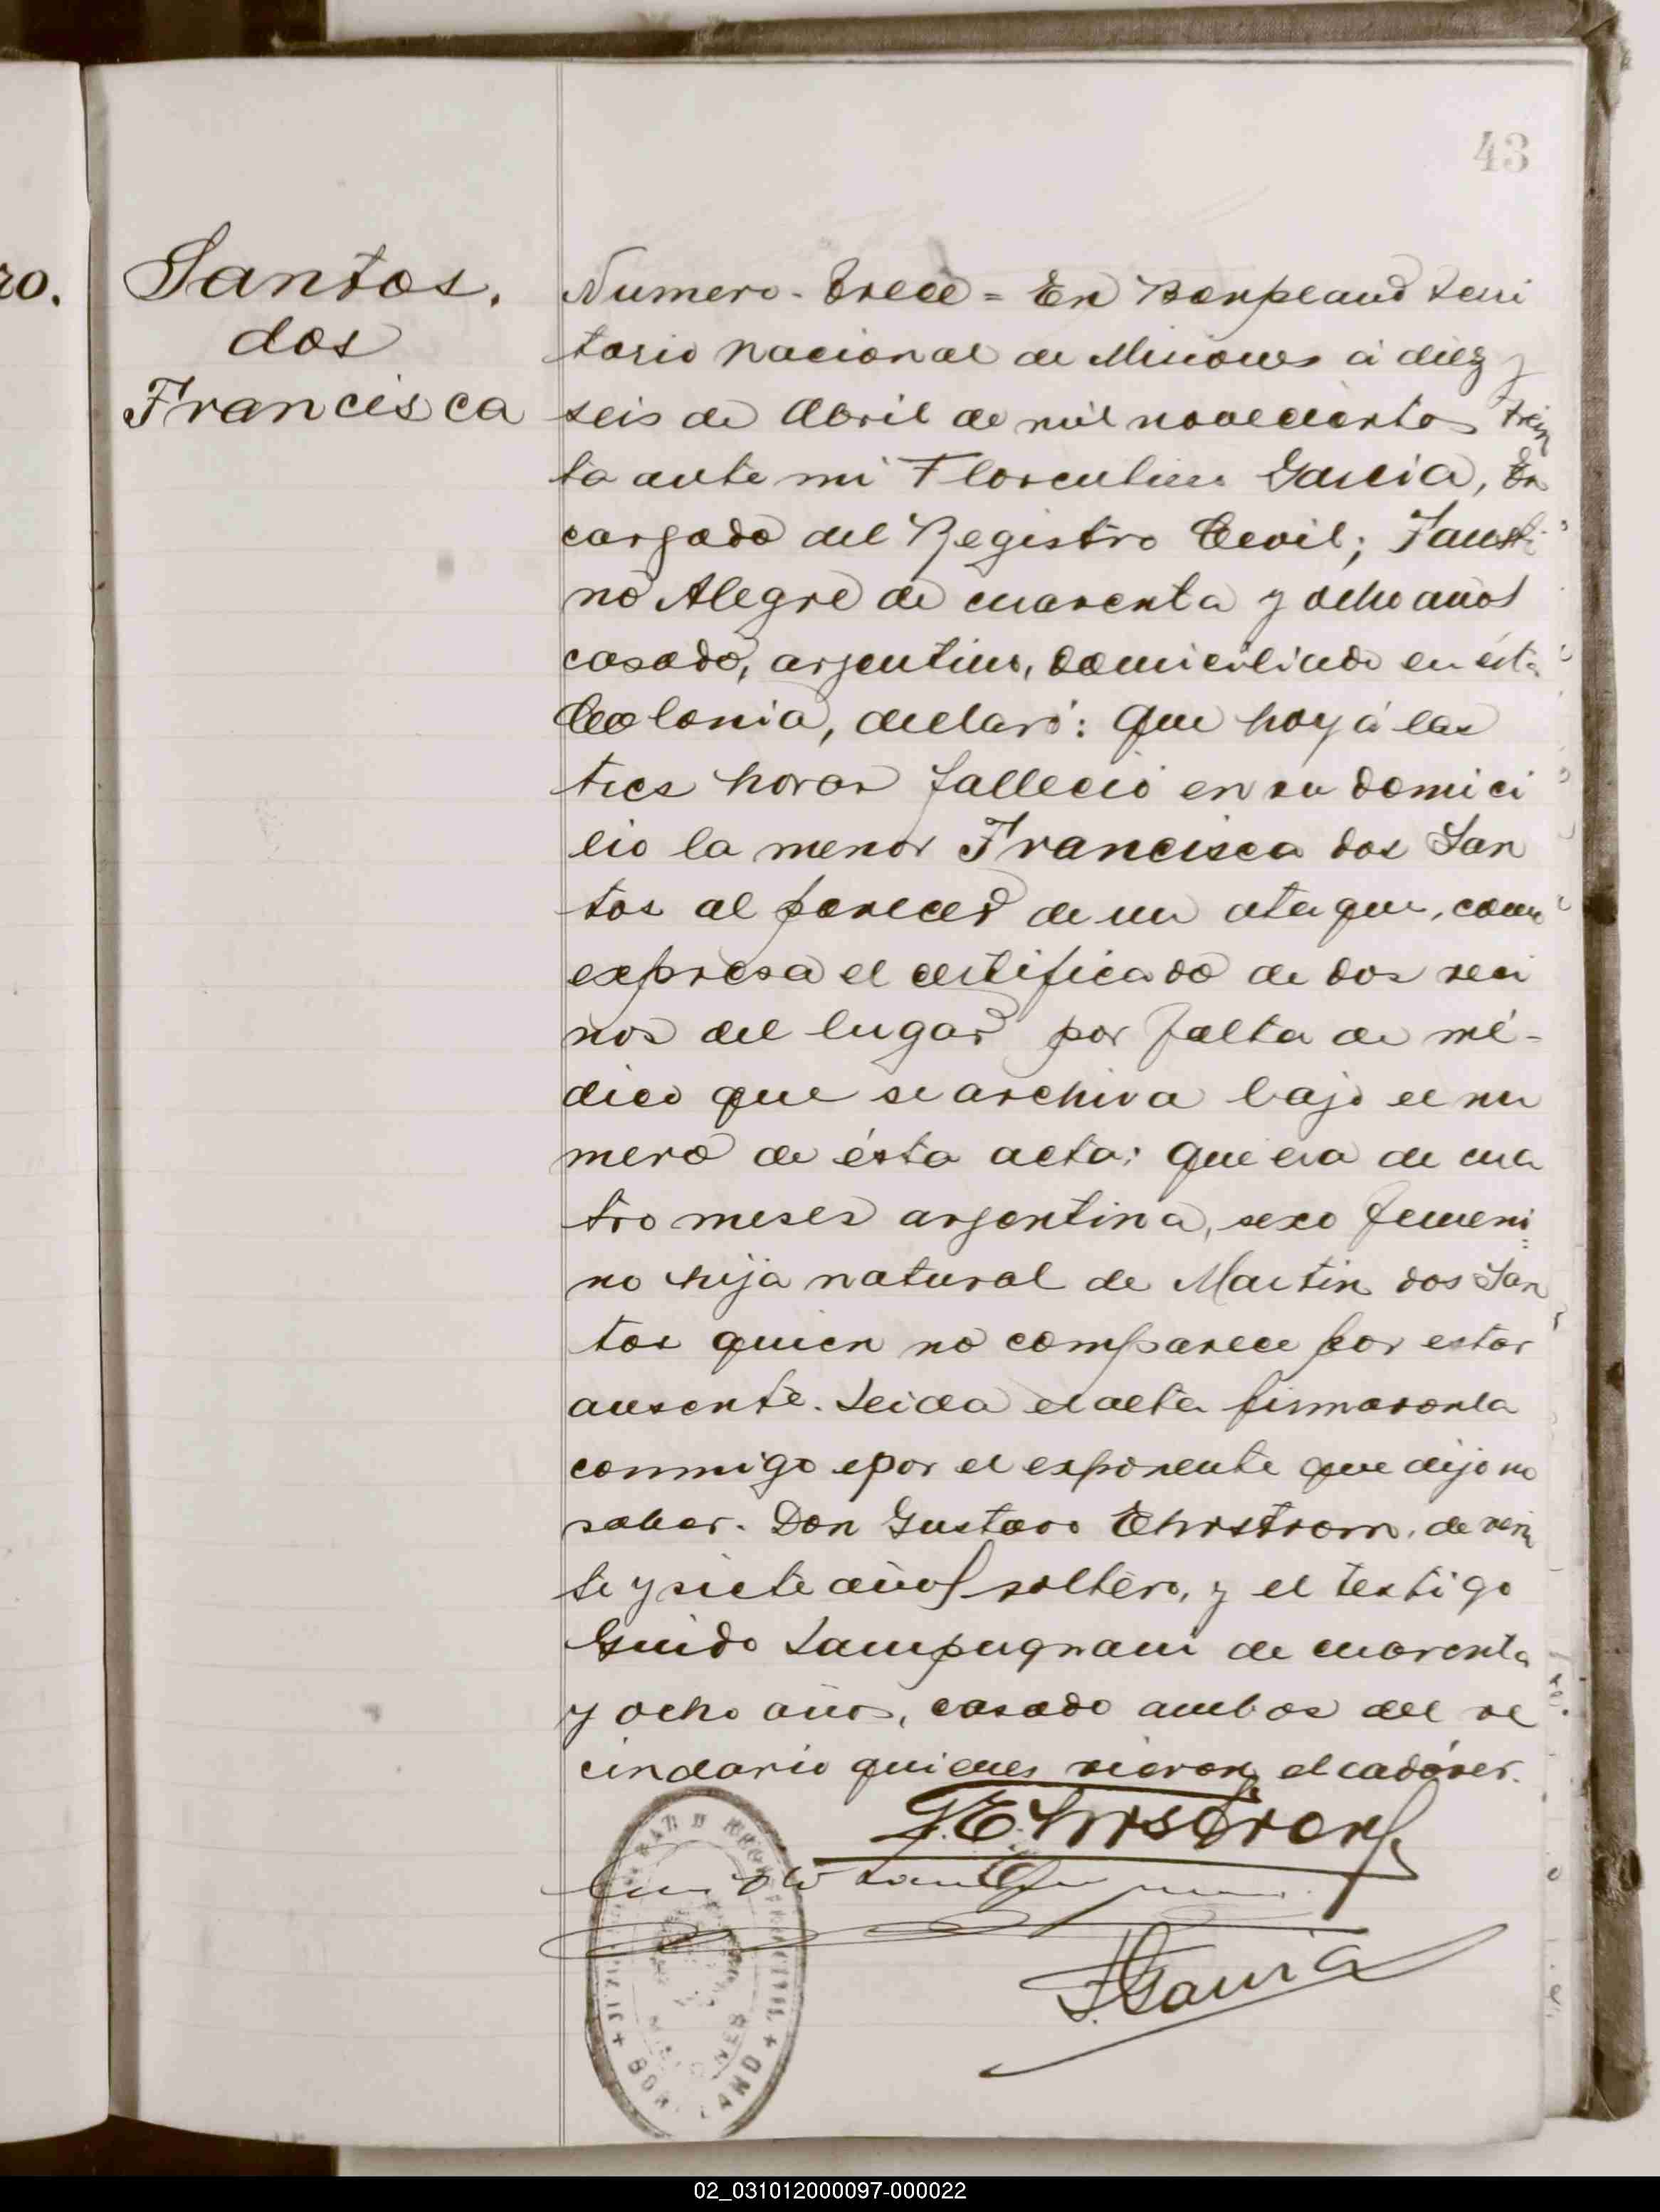 43
ro.
Santos,
dos
Francisca
Numero. Trece = En Bonpland terri
torio nacional de Misiones á diez y
seis de Abril de mil novecientos trein
ta ante mi Florentino Garcia, En
cargado del Registro Civil; Fausti
no Alegre de cuarenta y ocho años
casado, argentino, domiciliado en ésta
Colonia, declaró: Que hoy á las
tres horas falleció en su domici
lio la menor Francisca dos San
tos al parecer de un ataque, como
expresa el certificado de dos veci
nos del lugar por falta de mé-
dico que se archiva bajo el nu
mero de ésta acta: Que era de cua
tro meses argentina, sexo femeni
no hija natural de Martin dos San
tos quien no comparece por estar
ausente. Leida el acta firmaronla
conmigo y por el exponente que dijo no
saber. Don Gustavo Ehrstrom, de vein
te y siete años soltero, y el testigo
Guido Lampugnani de cuarenta
y ocho años, casado ambos del ve
cindario quienes vieron el cadáver.
G. Ehrstrom
Guido Lampugnani
F. Garcia
BONPLAND
MISIONES
02_031012000097-000022